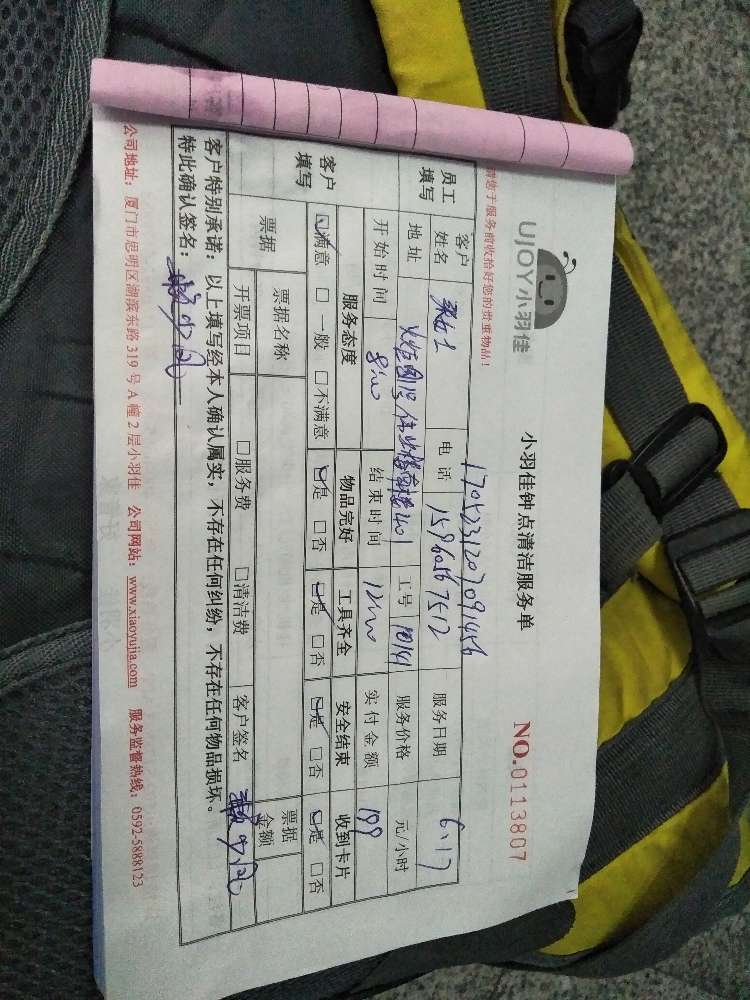 UJOY小羽佳
小羽佳钟点清洁服务单
NO.0113807
1705231207091456
请您于服务前收拾好您的贵重物品!
员工填写
客户姓名
女士
电话
15960567512
服务日期
6.17
地址
401
工号
服务价格
元/小时
开始时间
8:00
结束时间
12:00
实付金额
199
客户填写
服务态度 物品完好 工具齐全 安全结束 收到卡片
☑满意 □一般 □不满意 ☑是 □否 ☑是 □否 ☑是 □否 ☑是 □否
票据
票据名称
票据金额
开票项目 □服务费 □清洁费 客户签名
客户特别承诺:以上填写经本人确认属实,不存在任何纠纷,不存在任何物品损坏。
特此确认签名:
公司地址:厦门市思明区湖滨东路319号A幢2层小羽佳 公司网站:www.xiaoyujia.com 服务监督热线:0592-5888123